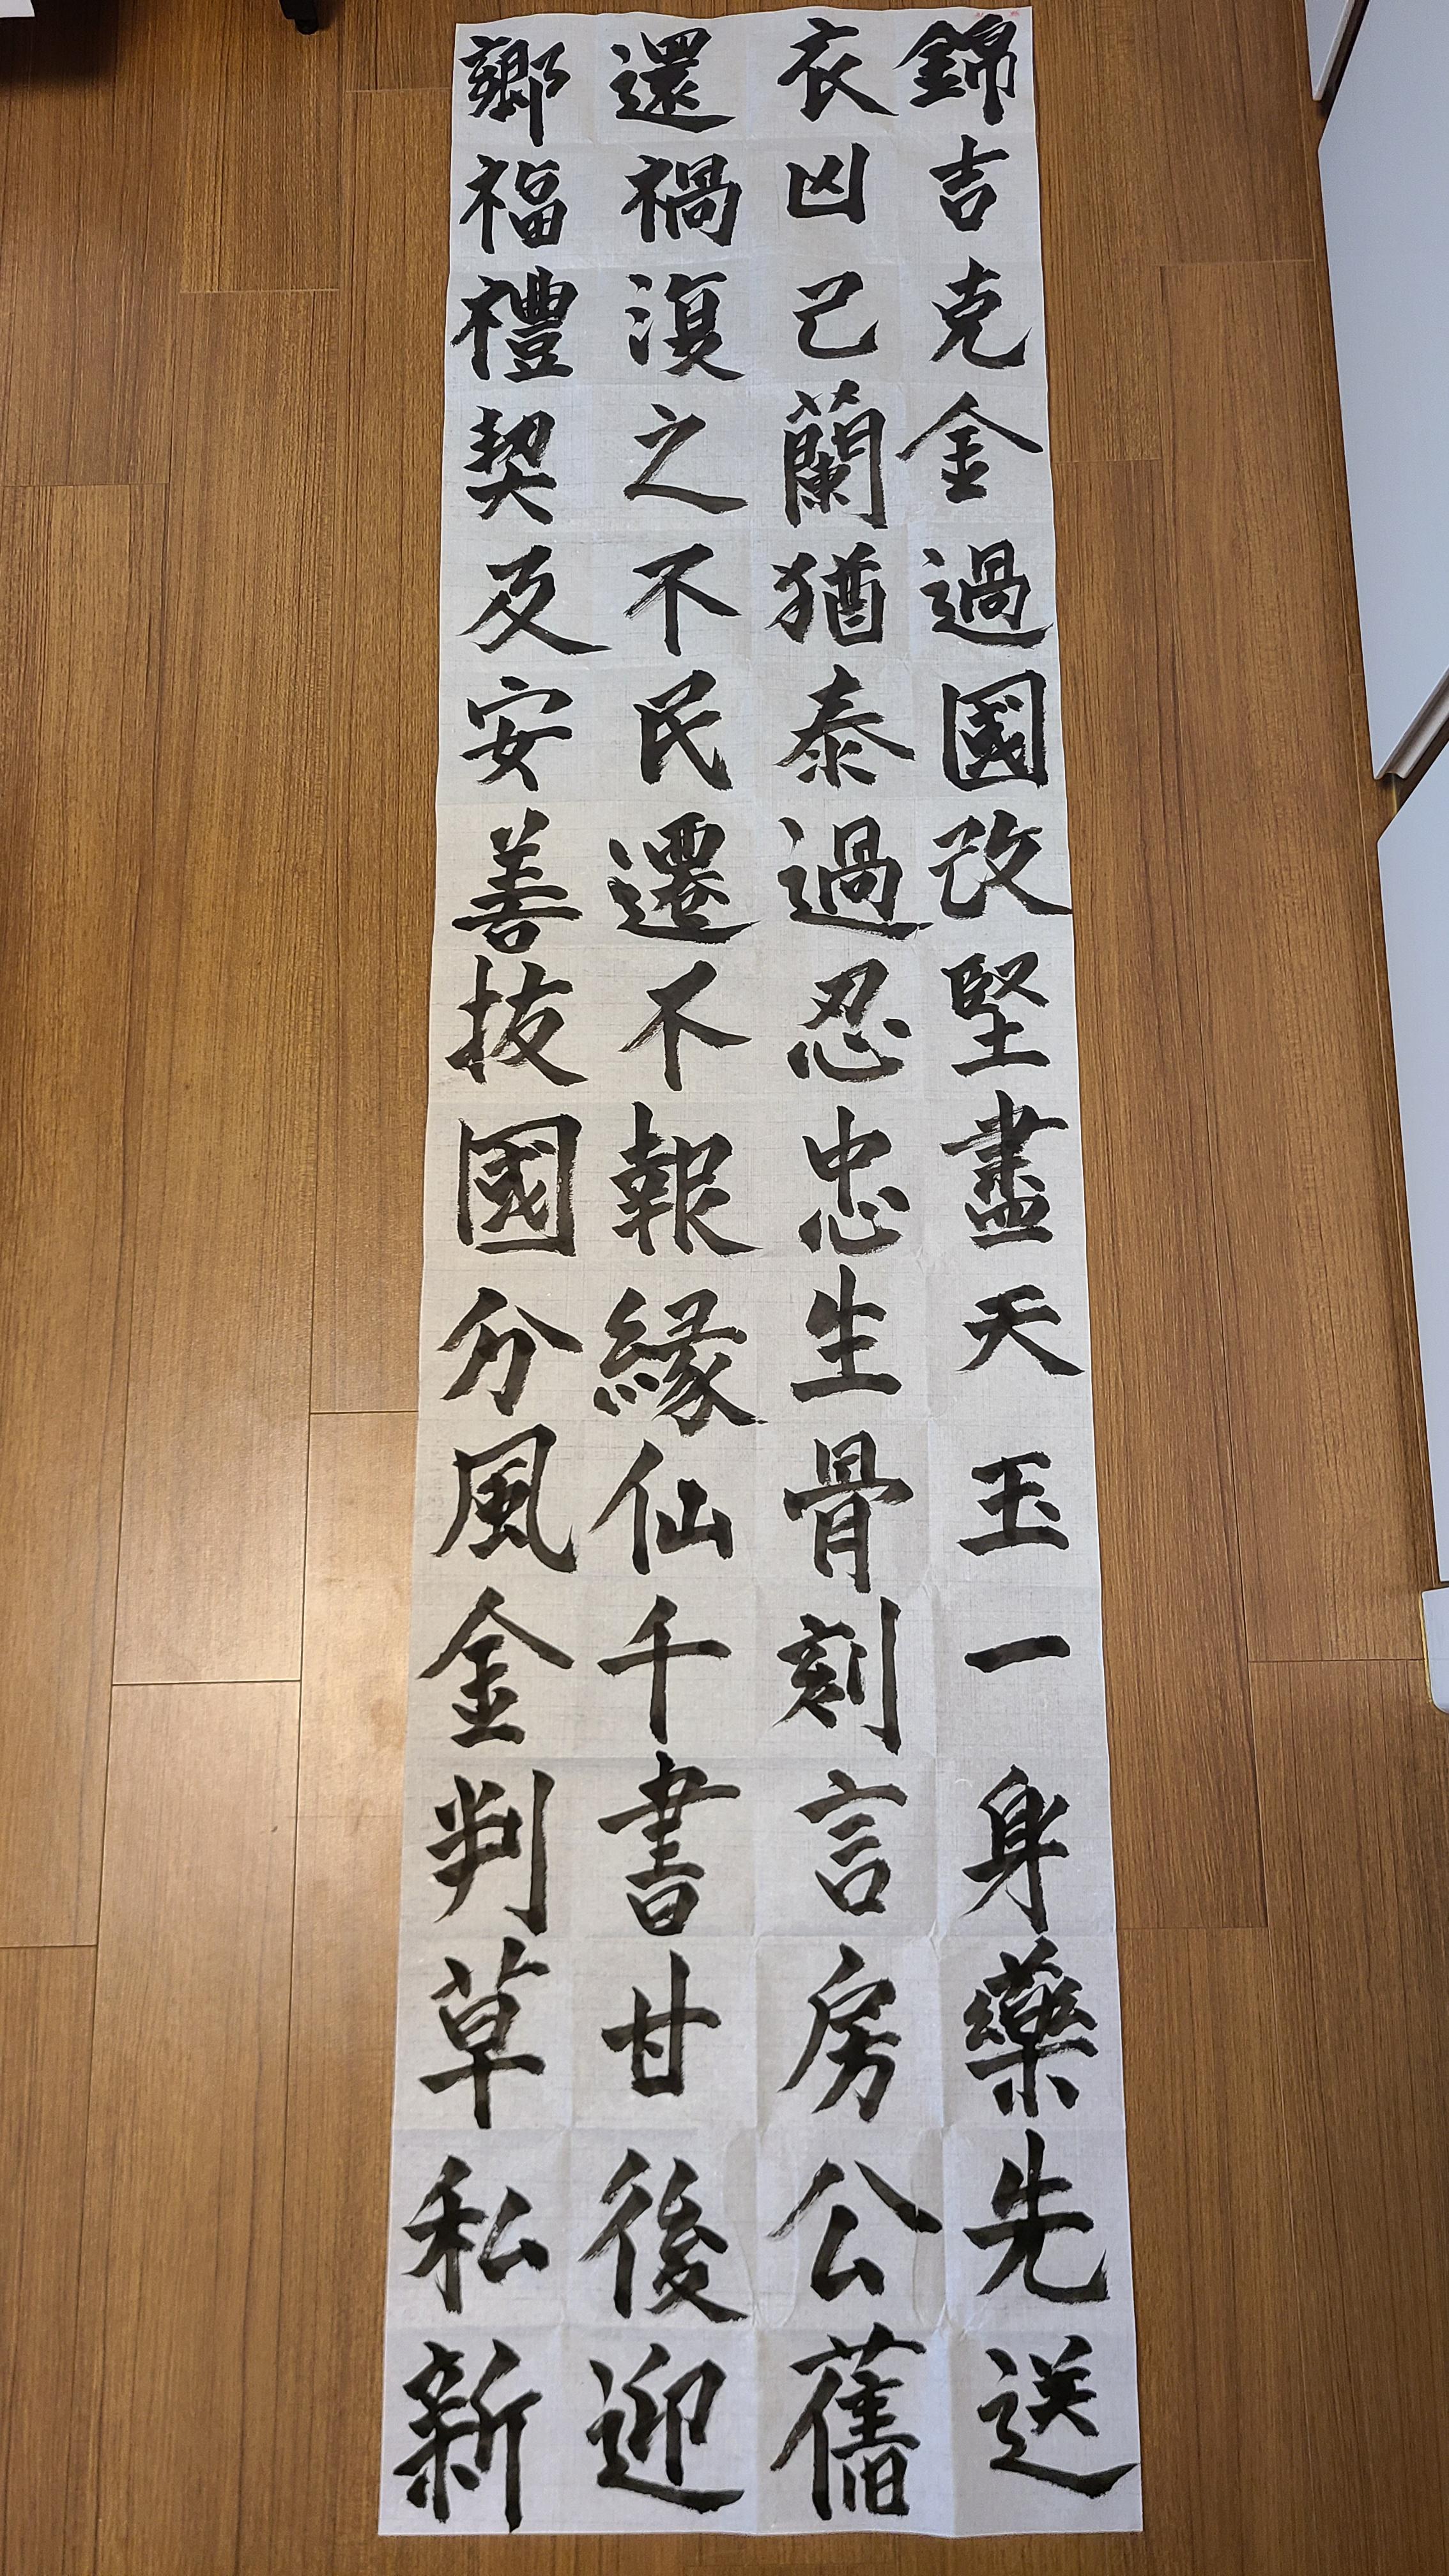 錦衣還鄕
吉凶禍福
克己復禮
金蘭之契
過猶不及
國泰民安
改過遷善
堅忍不拔
盡忠報國
天生緣分
玉骨仙風
一刻千金
身言書判
藥房甘草
先公後私
送舊迎新